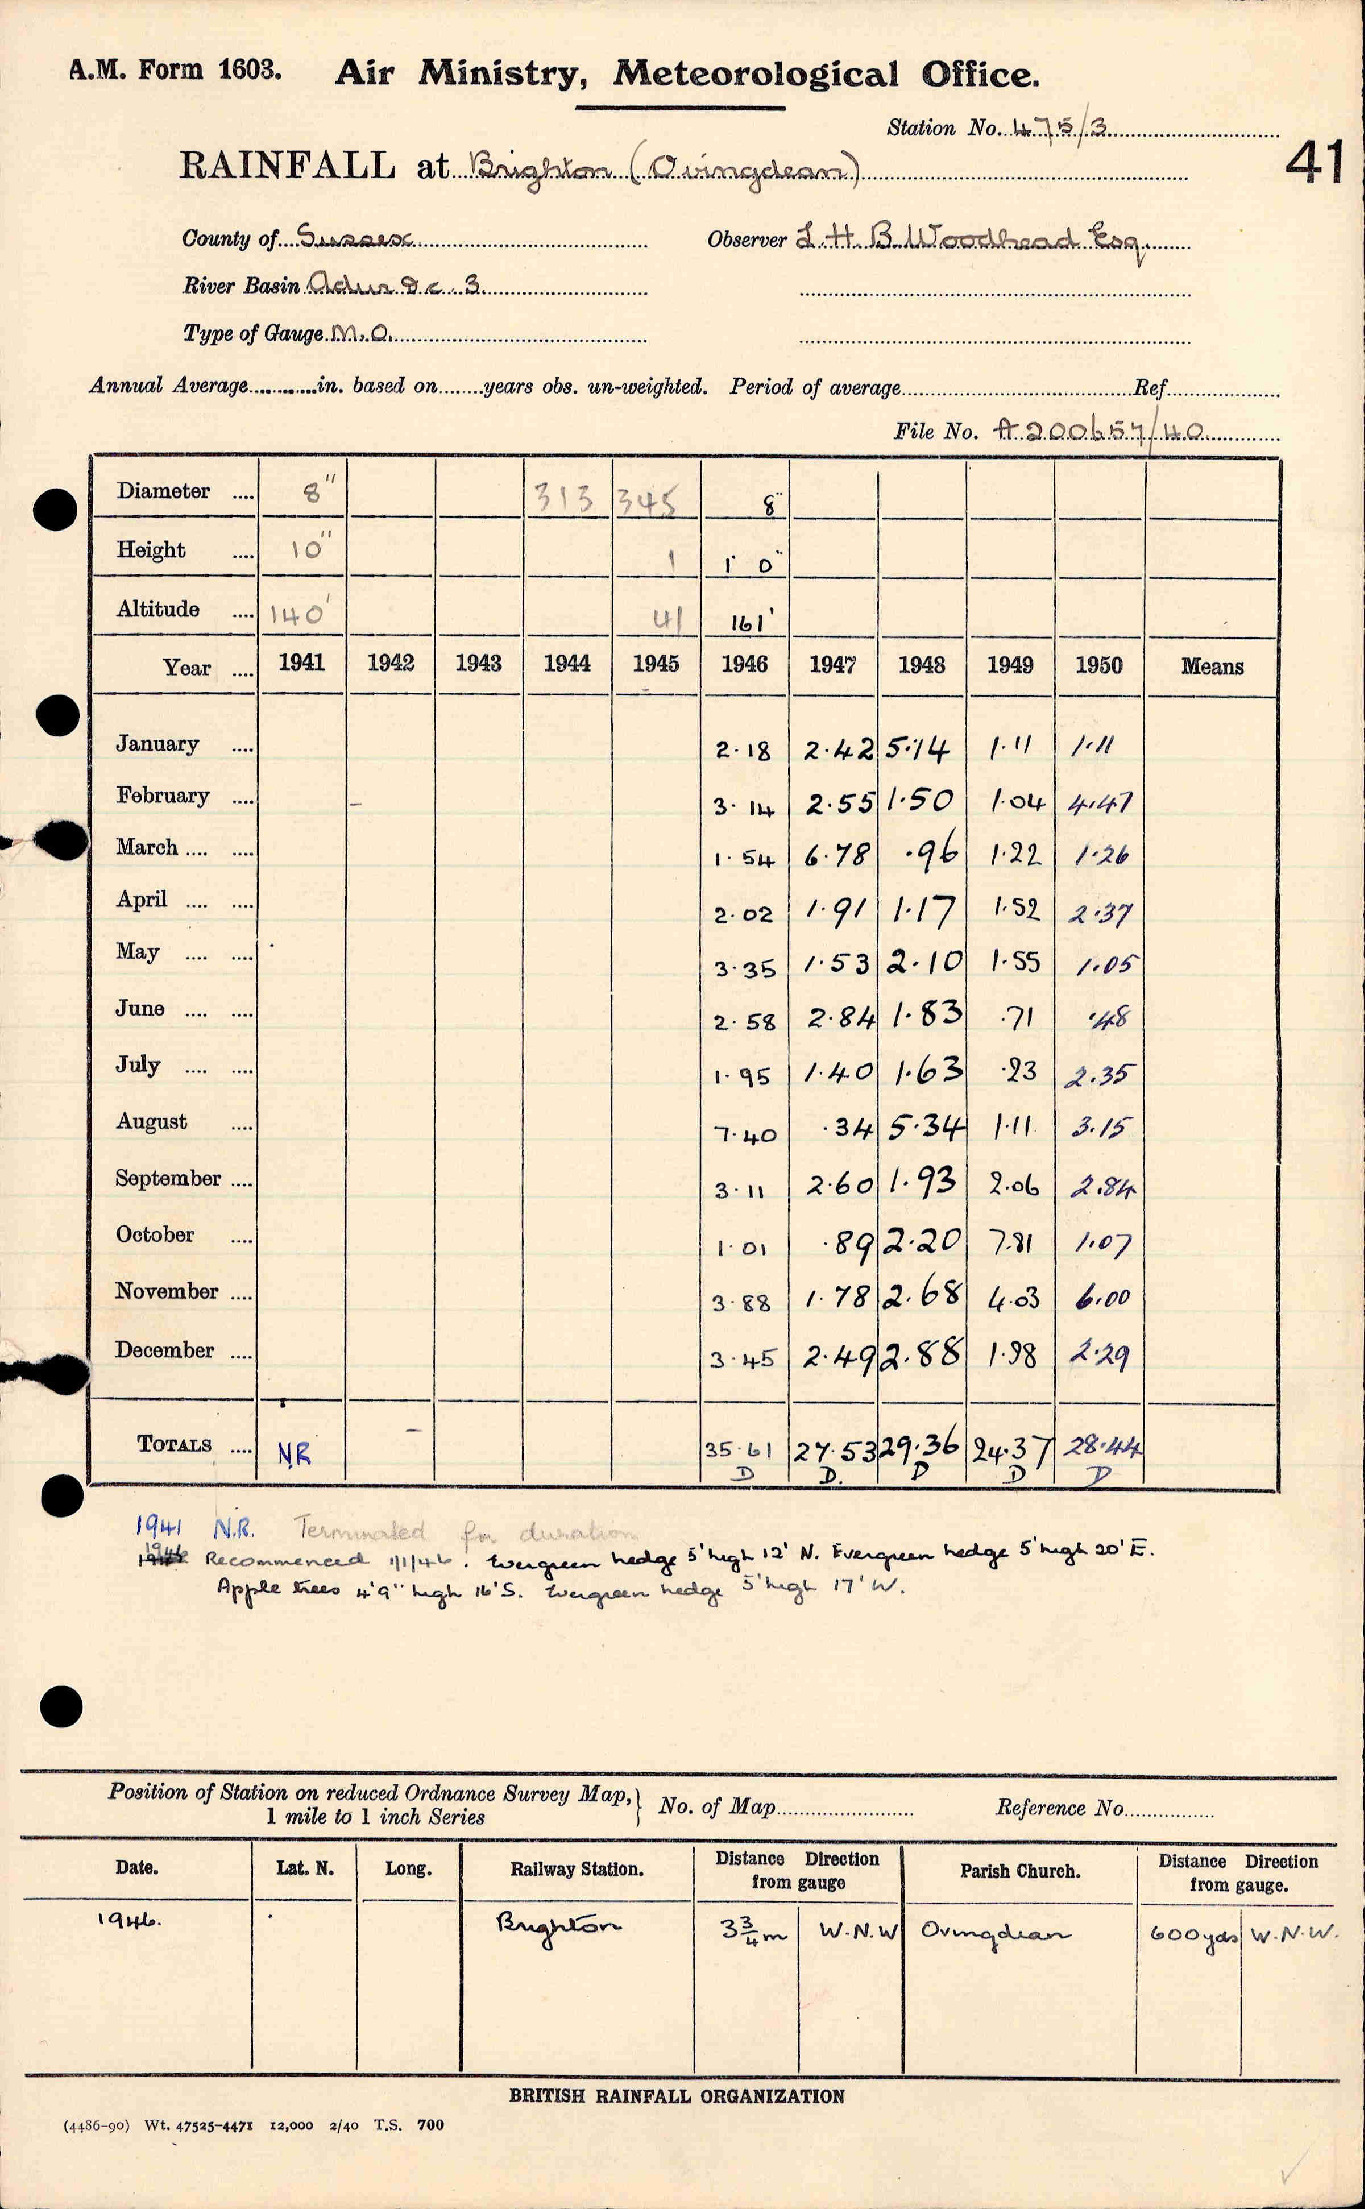 A.M. Form 1603. Air Ministry, Meteorological Office.
Station No. 475/3
41
RAINFALL at Brighton (Ovingdean)
County of Sussex Observer L. H. B. Woodhead Esq
River Basin Adur &c. 3
Type of Gauge M.O.
Annual Average in. based on years obs. un-weighted. Period of average Ref
File No. A 200657/40
Diameter 8" 313 345 8"
Height 10" 1 1' 0"
Altitude 140' 41 161'
Year 1941 1942 1943 1944 1945 1946 1947 1948 1949 1950 Means
January 2.18 2.42 5.14 1.11 1.11
February 3.14 2.55 1.50 1.04 4.47
March 1.54 6.78 .96 1.22 1.26
April 2.02 1.91 1.17 1.52 2.37
May 3.35 1.53 2.10 1.55 1.05
June 2.58 2.84 1.83 .71 .48
July 1.95 1.40 1.63 .23 2.35
August 7.40 .34 5.34 1.11 3.15
September 3.11 2.60 1.93 2.06 2.84
October 1.01 .89 2.20 7.81 1.07
November 3.88 1.78 2.68 4.03 6.00
December 3.45 2.49 2.88 1.98 2.29
TOTALS NR 35.61 27.53 29.36 24.37 28.44
D D. D D D
1941 N.R. Terminated for duration
1946 Recommenced 1/1/46. Evergreen hedge 5' high 12' N. Evergreen hedge 5' high 20' E.
Apple trees 4'9" high 16' S. Evergreen hedge 5' high 17' W.
Position of Station on reduced Ordnance Survey Map, } No. of Map Reference No.
1 mile to 1 inch Series
Date. Lat. N. Long. Railway Station. Distance Direction from gauge Parish Church. Distance Direction from gauge.
1946. Brighton 3¾m W.N.W Ovingdean 600yds W.N.W.
BRITISH RAINFALL ORGANIZATION
(4486-90) Wt. 47525-4471 12,000 2/40 T.S. 700